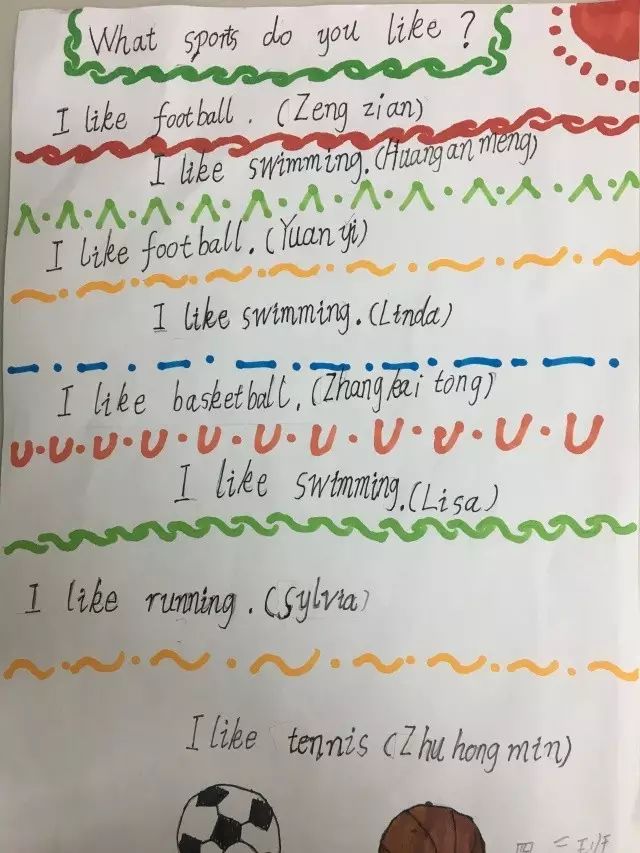 What sports do you like ?
I like football. (Zeng zian)
I like swimming. (Huang an meng)
I like football. (Yuan yi)
I like swimming. (Linda)
I like basketball. (Zhang kai tong)
I like swimming. (Lisa)
I like running. (Sylvia)
I like tennis (Zhu hong min)